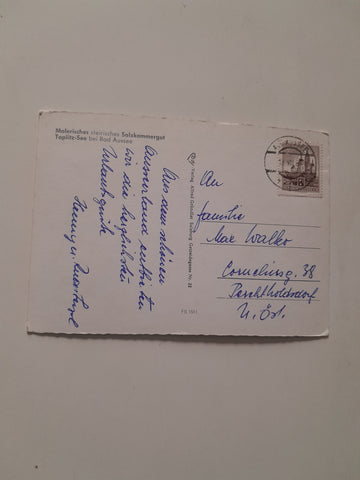 Malerisches steirisches Salzkammergut
Toplitz-See bei Bad Aussee
Aus dem schönen
Ausseerland entbieten
wir die herzlichsten
Urlaubsgrüße
Verlag Alfred Gründler Salzburg, Getreidegasse Nr. 22
An
Familie
Max Walko
Corneliusg. 38
Perchtholdsdorf
N. Öst.